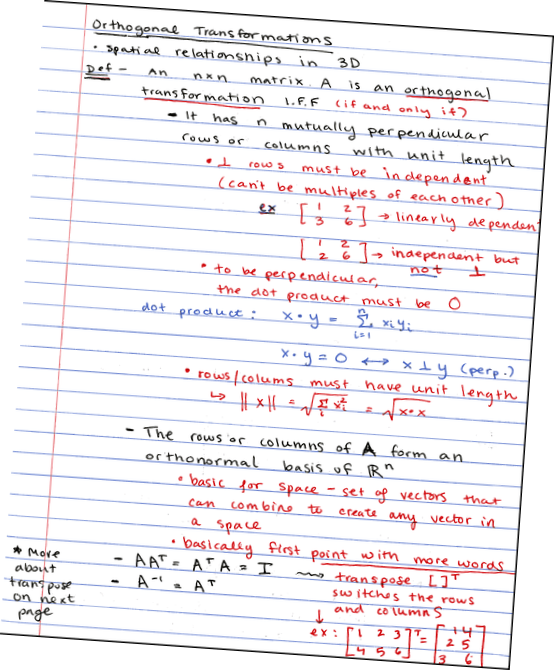 Orthogonal Transformations
• spatial relationships in 3D
Def - An nxn matrix A is an orthogonal
transformation I.F.F (if and only if)
- It has n mutually perpendicular
rows or columns with unit length
• ⊥ rows must be independent
(can't be multiples of each other)
ex [1 2
3 6] → linearly dependent
[1 2
2 6] → independent but
not ⊥
• to be perpendicular,
the dot product must be 0
dot product: x • y = n Σ i=1 xiyi
x • y = 0 ↔ x ⊥ y (perp.)
• rows/colums must have unit length
↳ ||x|| = √Σ xi² = √x•x
- The rows or columns of A form an
orthonormal basis of ℝⁿ
• basic for space - set of vectors that
can combine to create any vector in
a space
• basically first point with more words
- AAᵀ = AᵀA = I ⟿ transpose [ ]ᵀ
- A⁻¹ = Aᵀ
switches the rows
and columns
↓
ex: [1 2 3
4 5 6]ᵀ = [1 4
2 5
3 6]
* More
about
transpose
on next
page